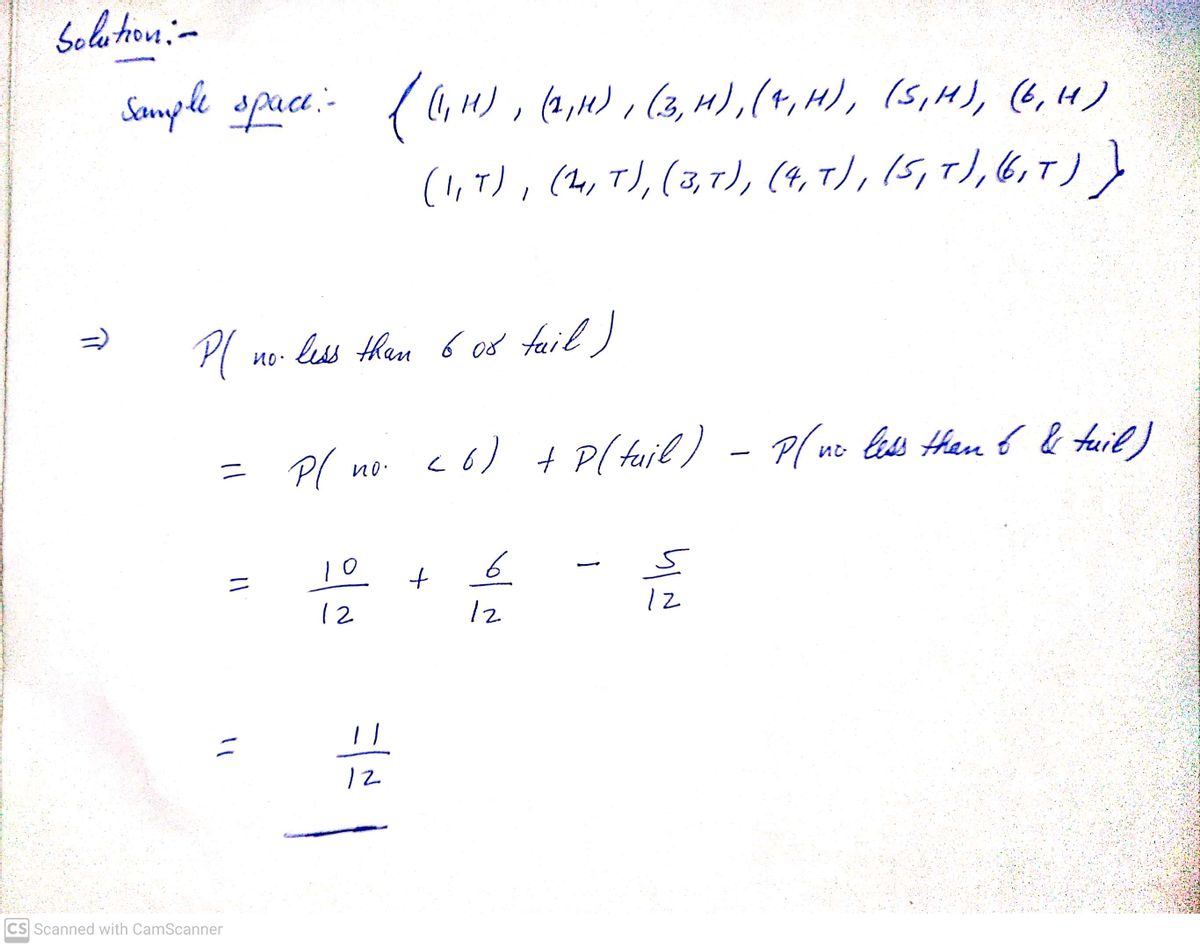 Solution:-
Sample space:- { (1, H) , (2, H) , (3, H), (4, H), (5, H), (6, H)
(1, T) , (2, T), (3, T), (4, T), (5, T), (6, T) }
⇒ P( no. less than 6 or tail )
= P( no. < 6) + P(tail) - P( no less than 6 & tail)
= 10/12 + 6/12 - 5/12
= 11/12
CS Scanned with CamScanner